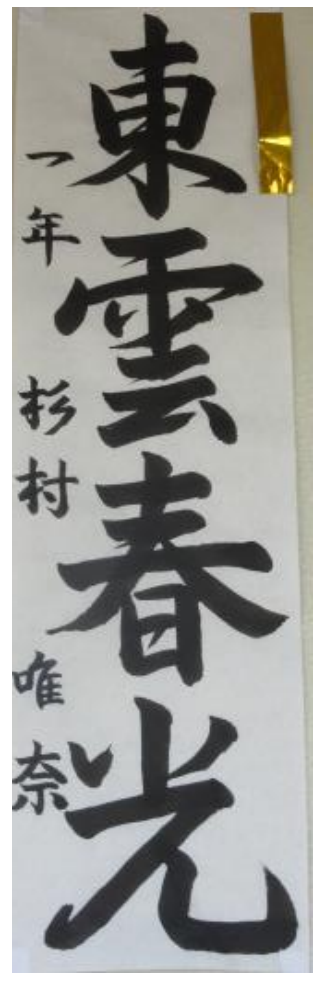 東雲春光
一年 杉村 唯奈